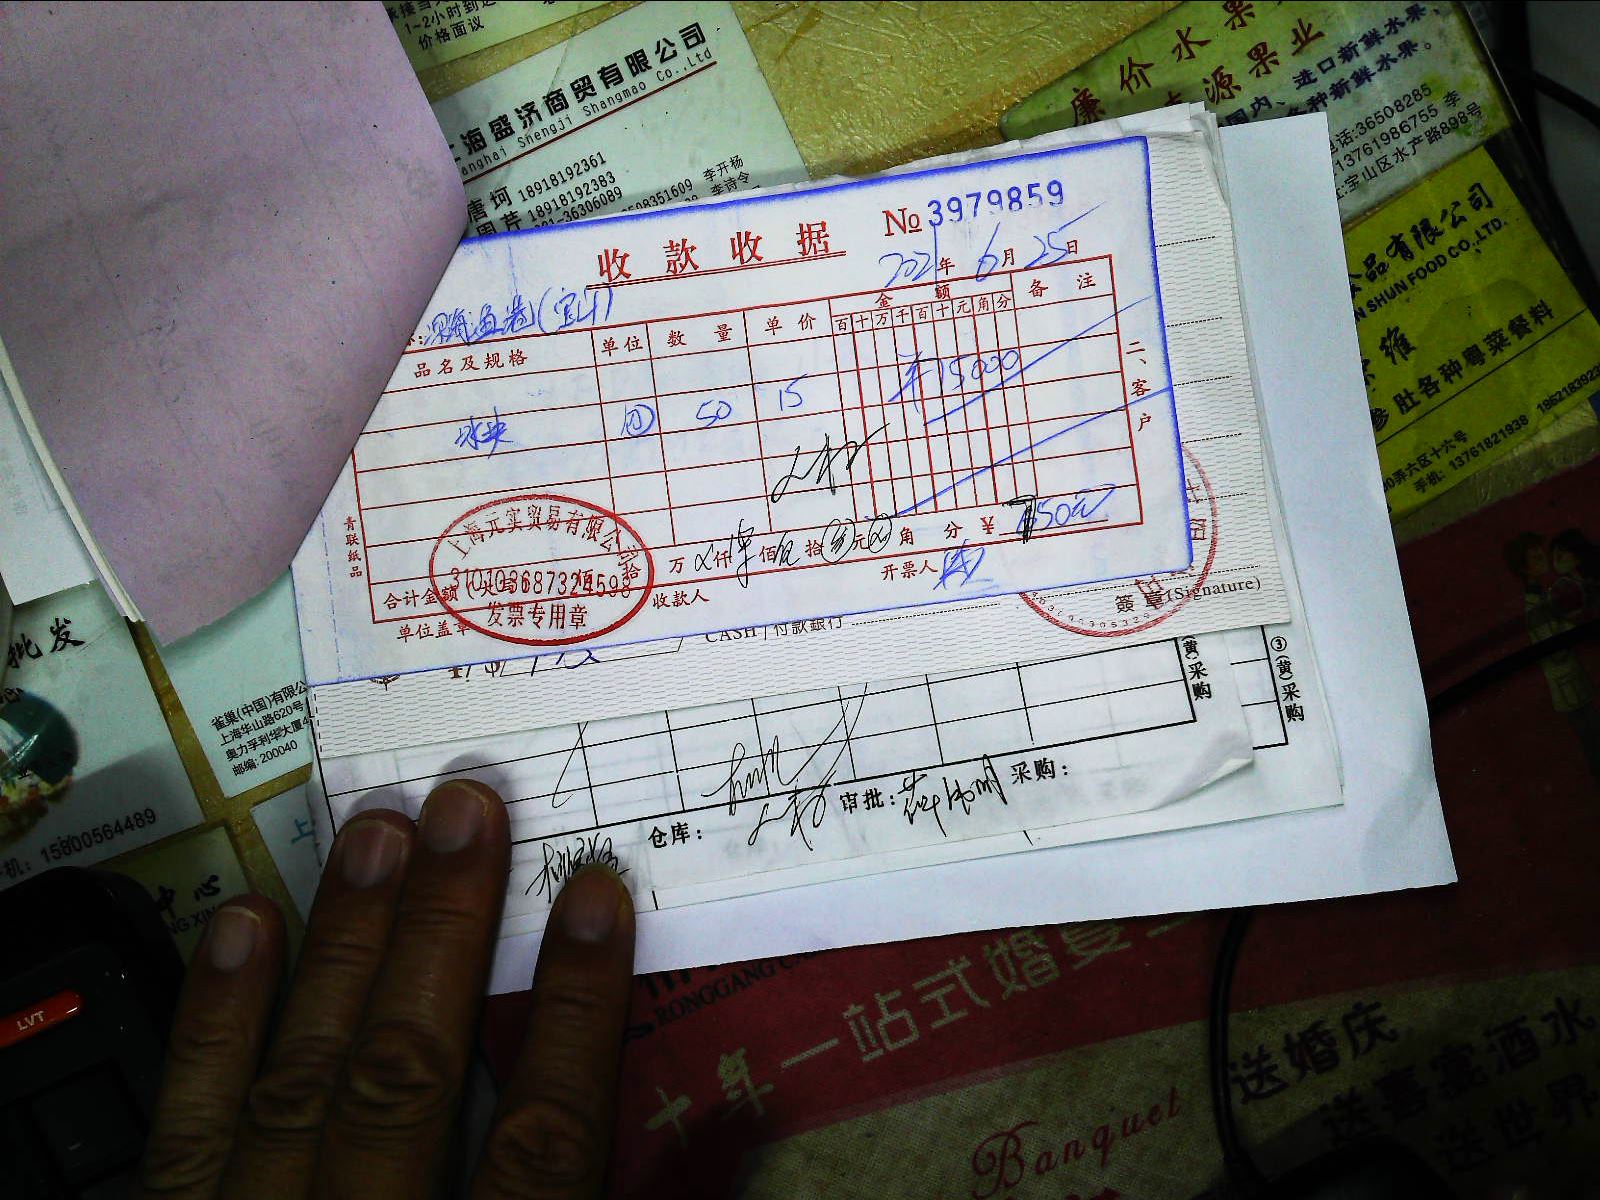 1~2小时到达
价格面议
上海盛济商贸有限公司
Shanghai Shengji Shangmao Co.,Ltd
唐珂 18918192361
周芹 18918192383
021-36306089
李开杨
李诗令
廉价水果
源果业
国内、进口新鲜水果,
各种新鲜水果。
电话:36508285
13761986755 李
宝山区水产路898号
品有限公司
SHUN FOOD CO.,LTD.
参肚各种粤菜餐料
00弄六区十六号
手机: 13761821938 1862183923
收款收据
№ 3979859
2021年6月25日
深海鱼港(宝山)
品名及规格 单位 数量 单价 金额 备注
百十万千百十元角分
冰块 50 15 ¥15000
二、客户
青联纸品
上海元实贸易有限公司
310103687324598
发票专用章
合计金额(大写) 佰 拾 万 仟 佰 拾 元 角 分 ¥ 750元
单位盖章 收款人 开票人
CASH / 付款銀行
簽章(Signature)
(黄)采购
③(黄)采购
仓库:
审批:
采购:
批发
雀巢(中国)有限公
上海华山路620号
奥力孚利华大厦4
邮编: 200040
手机: 15800564489
中心
LVT
RONGGANG
十年一站式婚宴
送婚庆
送喜宴酒水
送世界
Banquet